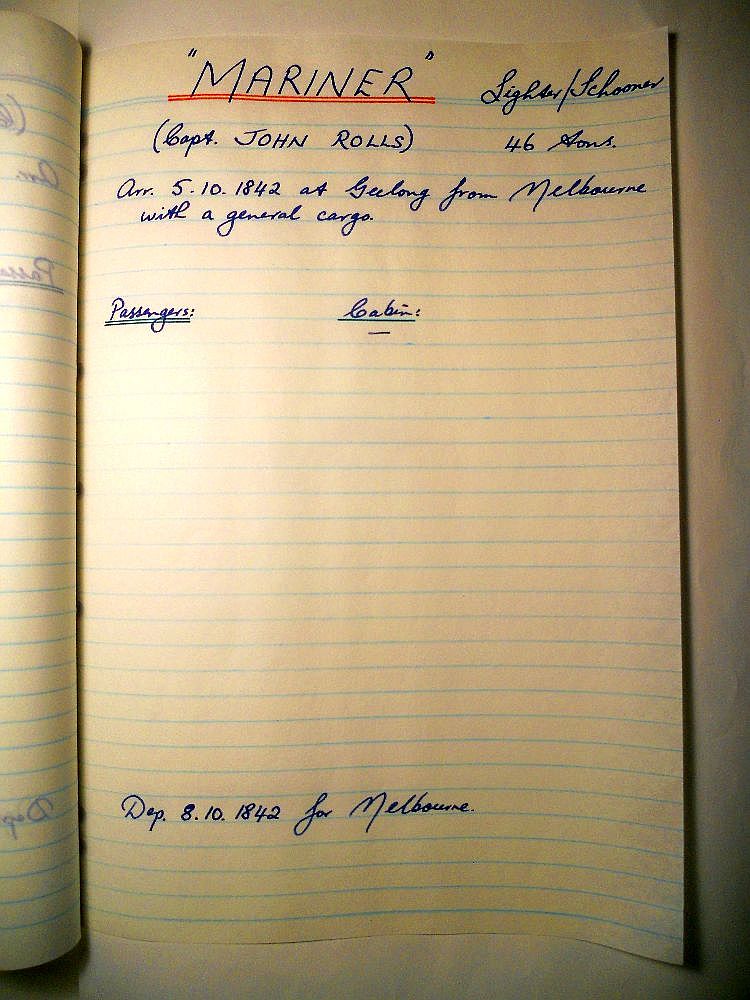 "MARINER" Lighter/Schooner
(Capt. JOHN ROLLS) 46 Tons.
Arr. 5.10.1842 at Geelong from Melbourne
with a general cargo.
Passengers: Cabin:
—
Dep. 8.10.1842 for Melbourne.